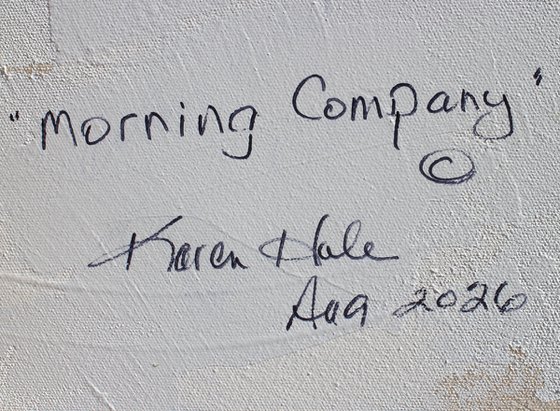 "Morning Company"
©
Karen Hale
Aug 2026